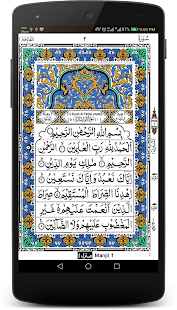 سورة
بِسْمِ اللهِ الرَّحْمٰنِ الرَّحِيْمِ
اَلْحَمْدُ لِلّٰهِ رَبِّ الْعٰلَمِيْنَ الرَّحْمٰنِ
الرَّحِيْمِ مٰلِكِ يَوْمِ الدِّيْنِ
اِيَّاكَ نَعْبُدُ وَاِيَّاكَ نَسْتَعِيْنُ
اِهْدِنَا الصِّرَاطَ الْمُسْتَقِيْمَ صِرَاطَ
الَّذِيْنَ اَنْعَمْتَ عَلَيْهِمْ غَيْرِ
الْمَغْضُوْبِ عَلَيْهِمْ وَلَا الضَّآلِّيْنَ
Manjil 1